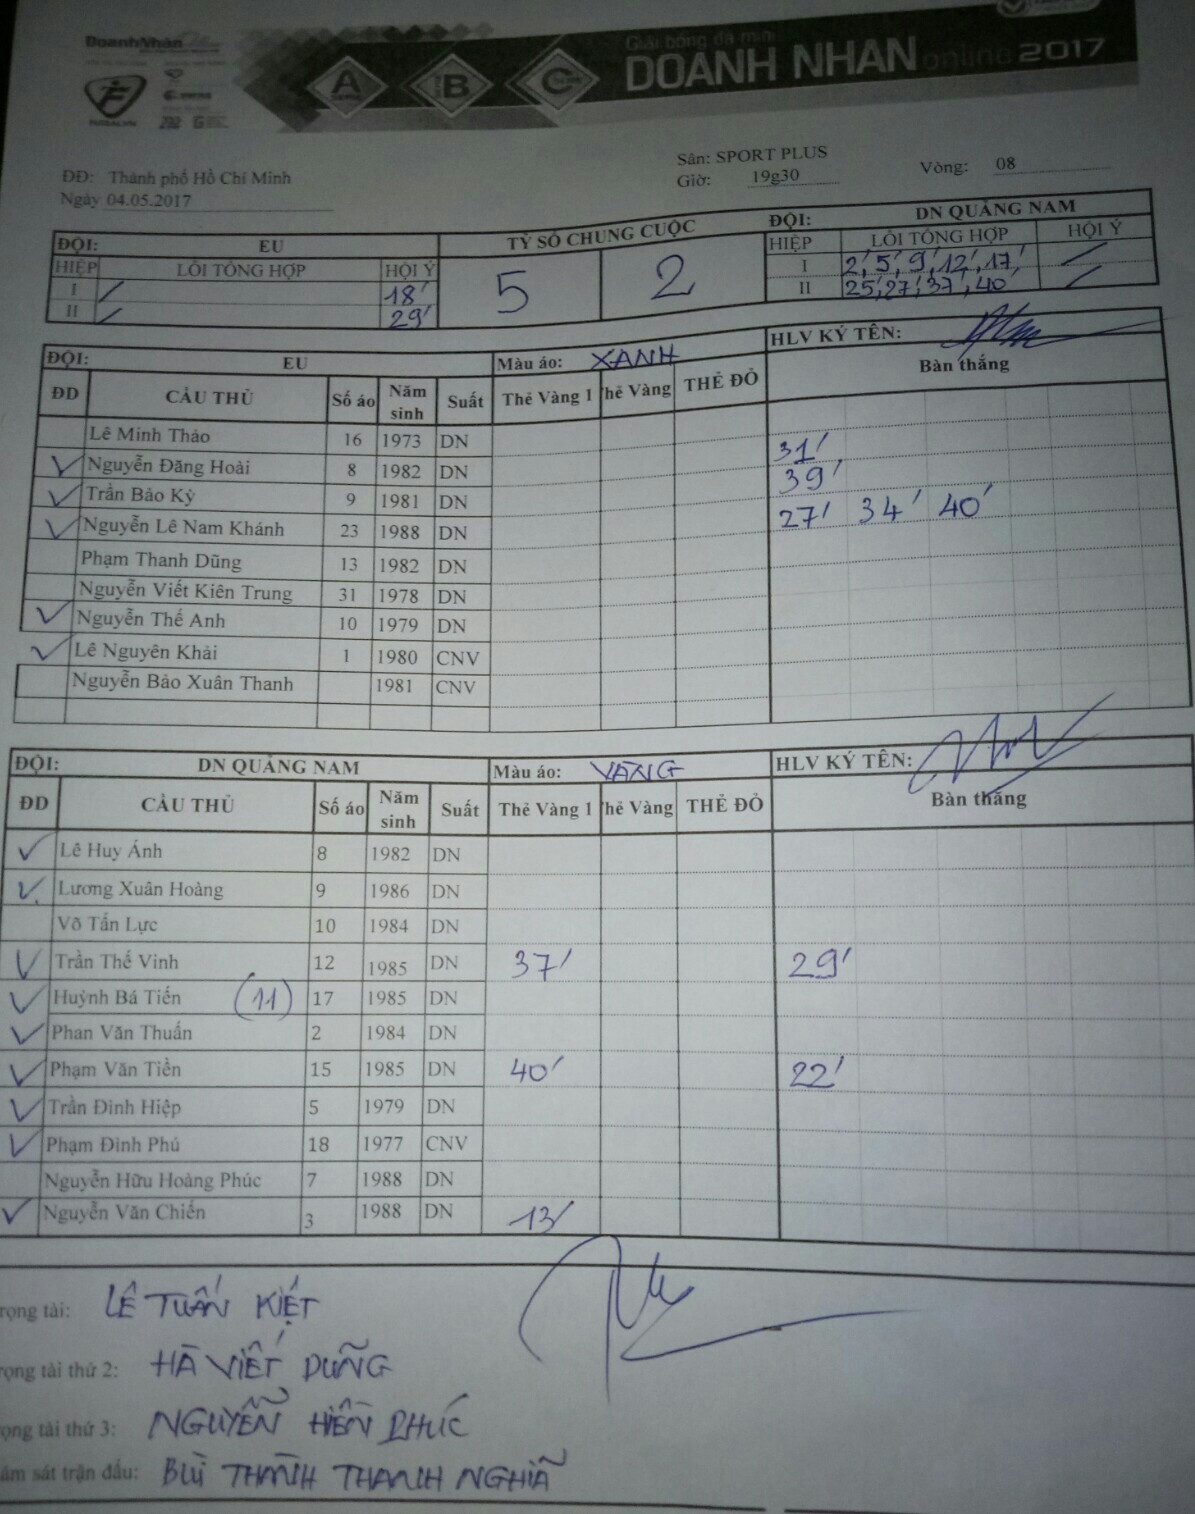 DoanhNhân
FUTSALVN
A
B
C
Giải bóng đá mini
DOANH NHAN online 2017
ĐĐ: Thành phố Hồ Chí Minh
Sân: SPORT PLUS
Vòng: 08
Ngày 04.05.2017
Giờ: 19g30
ĐỘI: EU TỶ SỐ CHUNG CUỘC ĐỘI: DN QUẢNG NAM
HIỆP LỖI TỔNG HỢP HỘI Ý 5 2 HIỆP LỖI TỔNG HỢP HỘI Ý
I / 18' I 2', 5', 9', 12', 17' /
II / 29' II 25', 27', 37', 40' /
ĐỘI: EU Màu áo: XANH HLV KÝ TÊN:
ĐD CẦU THỦ Số áo Năm sinh Suất Thẻ Vàng 1 Thẻ Vàng THẺ ĐỎ Bàn thắng
Lê Minh Thảo 16 1973 DN
✓ Nguyễn Đăng Hoài 8 1982 DN 31'
✓ Trần Bảo Kỳ 9 1981 DN 39'
✓ Nguyễn Lê Nam Khánh 23 1988 DN 27' 34' 40'
Phạm Thanh Dũng 13 1982 DN
Nguyễn Viết Kiên Trung 31 1978 DN
✓ Nguyễn Thế Anh 10 1979 DN
✓ Lê Nguyên Khải 1 1980 CNV
Nguyễn Bảo Xuân Thanh 1981 CNV
ĐỘI: DN QUẢNG NAM Màu áo: VÀNG HLV KÝ TÊN:
ĐD CẦU THỦ Số áo Năm sinh Suất Thẻ Vàng 1 Thẻ Vàng THẺ ĐỎ Bàn thắng
✓ Lê Huy Ánh 8 1982 DN
✓ Lương Xuân Hoàng 9 1986 DN
Võ Tấn Lực 10 1984 DN
✓ Trần Thế Vinh 12 1985 DN 37' 29'
✓ Huỳnh Bá Tiến (11) 17 1985 DN
✓ Phan Văn Thuấn 2 1984 DN
✓ Phạm Văn Tiền 15 1985 DN 40' 22'
✓ Trần Đình Hiệp 5 1979 DN
✓ Phạm Đình Phú 18 1977 CNV
Nguyễn Hữu Hoàng Phúc 7 1988 DN
✓ Nguyễn Văn Chiến 3 1988 DN 13'
rọng tài: LÊ TUẤN KIỆT
rọng tài thứ 2: HÀ VIẾT DŨNG
ọng tài thứ 3: NGUYỄN HIỀN PHÚC
ám sát trận đấu: BÙI THÀNH THANH NGHĨA